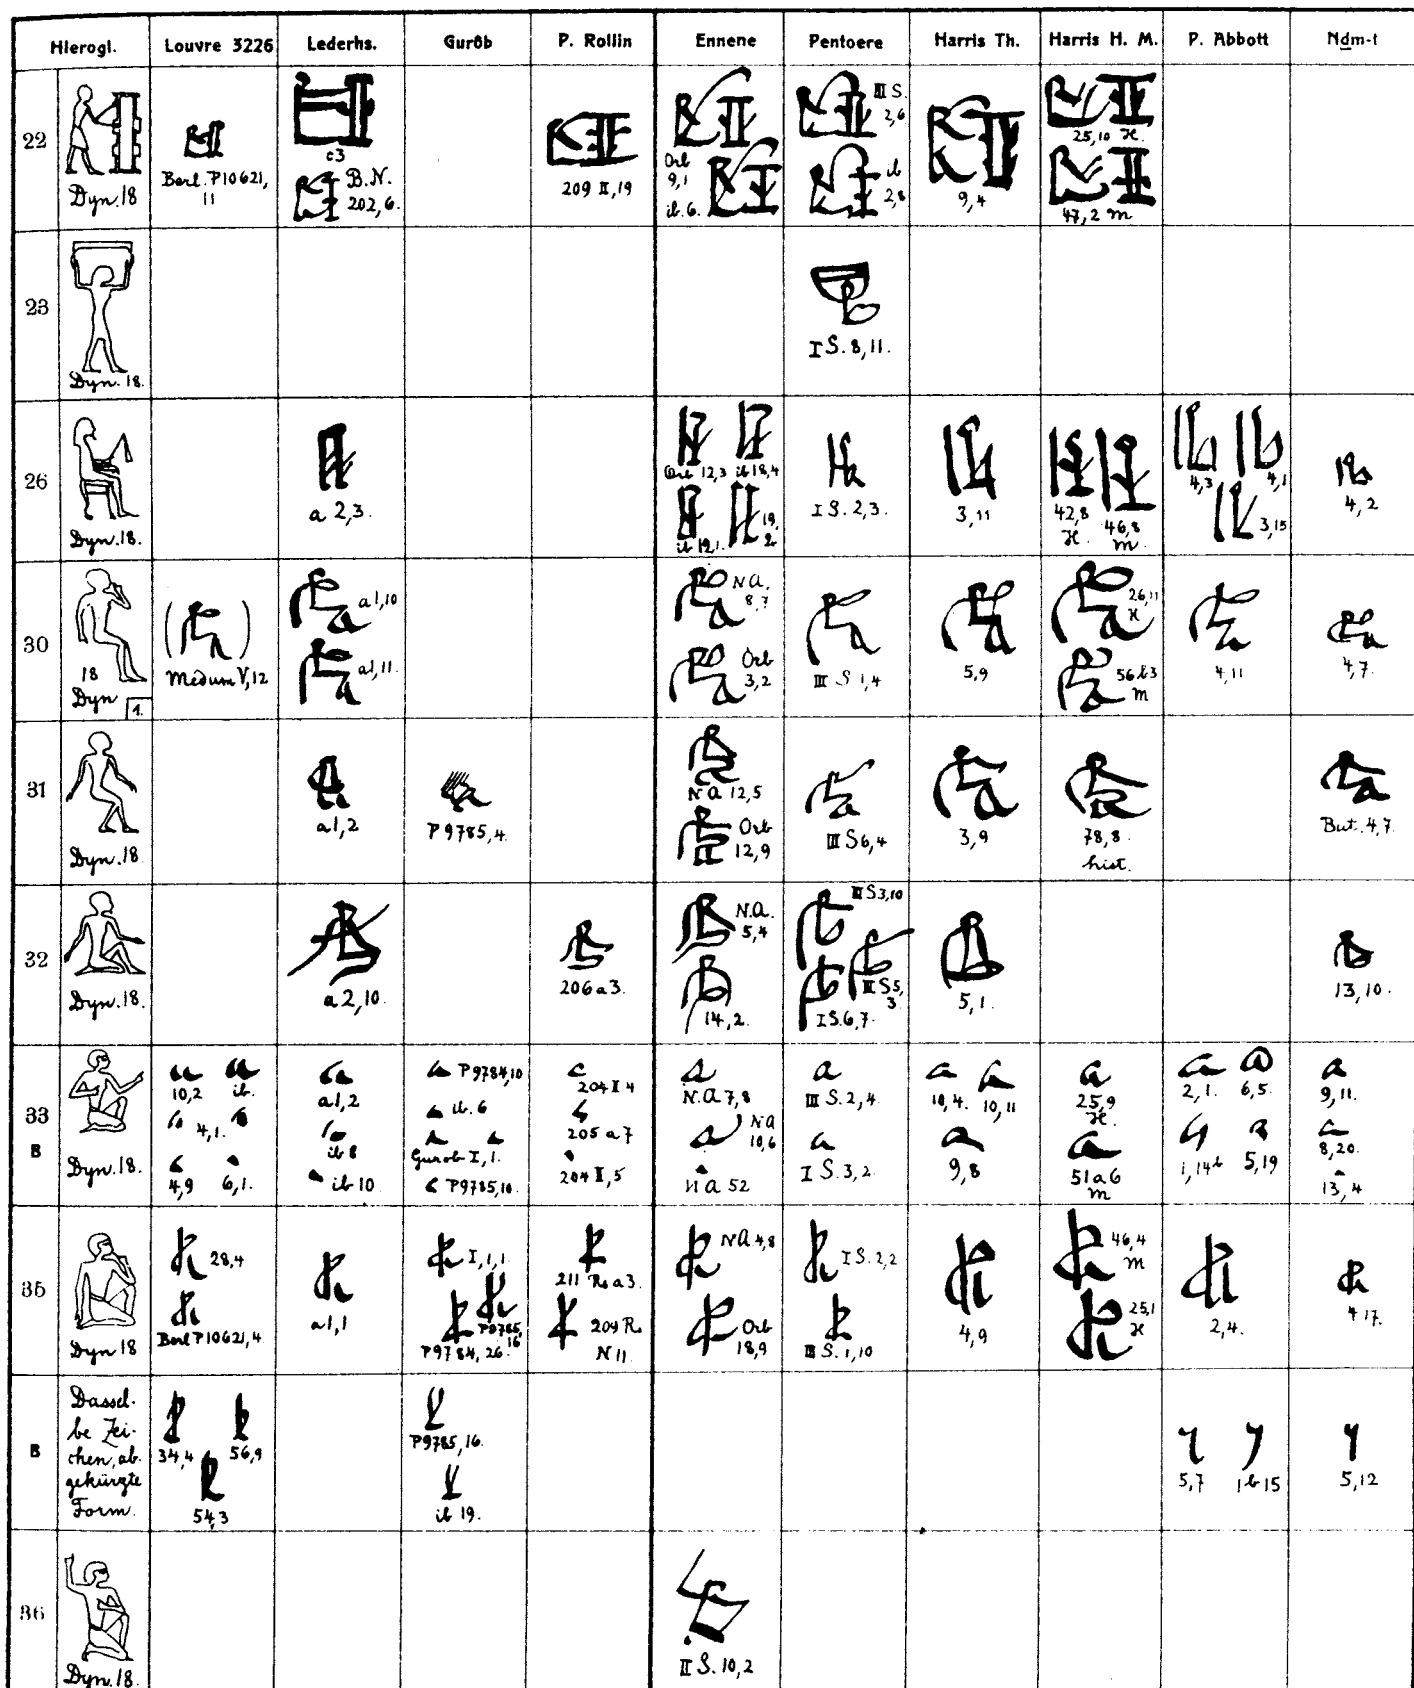 Hierogl. Louvre 3226 Lederhs. Gurôb P. Rollin Ennene Pentoere Harris Th. Harris H. M. P. Abbott Nḏm-t
22
Dyn. 18
Berl. P10621,
11
c3
B.N.
202,6.
209 II,19
Orb
9,1
ib. 6.
III S.
2,6
ib
2,8
9,4
25,10 H.
47,2 M
23
Dyn. 18.
I S. 8,11.
26
Dyn. 18.
a 2,3.
Orb 12,3 ib 18,4
ib 19,1. 19,
2
I S. 2,3.
3,11
42,8
H.
46,8
M.
4,3 4,1
3,15
4,2
30
18
Dyn 1.
Médum V,12
a1,10
a1,11.
N.A.
8,7
Orb
3,2
III S 1,4
5,9
26,11
H
56b3
M
4,11
4,7.
31
Dyn. 18.
a1,2
P9785,4.
N A 12,5
Orb
12,9
III S6,4
3,9
78,8.
hist.
But. 4,7.
32
Dyn. 18.
a 2,10.
206a3.
N.A.
5,4
14,2.
III S3,10
III S5,
3.
I S.6,7.
5,1.
13,10.
33
B
Dyn. 18.
10,2 ib.
4,1.
4,9 6,1.
a1,2
ib 8
ib 10
P9784,10
ib. 6
Gurob I,1.
P9785,10.
204 I 4
205 a 7
204 I,5
N.A 7,8
N A
10,6
N A 52
III S. 2,4.
I S. 3,2.
10,4. 10,11
9,8
25,9
H.
51a6
M
2,1. 6,5.
1,14b 5,19
9,11.
8,20.
13,4
35
Dyn 18
28,4
Berl P10621,4.
a1,1
I,1,1
P9785,
16
P9784,26.
211 Rs a3.
209 R.
N 11.
N A 4,8
Orb
18,9
I S. 2,2
III S. 1,10
4,9
46,4
M
25,1
H
2,4.
4 17.
B
Dassel-
be Zei-
chen, ab
gekürzte
Form.
34,4 56,9
54,3
P9785,16.
ib 19.
5,7 1b15
5,12
36
Dyn. 18.
II S. 10,2